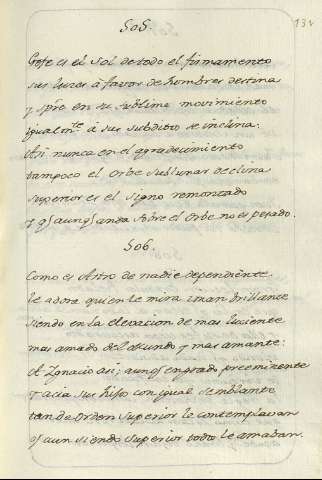 505.
131
Gefe es el Sol de todo el firmamento
sus luces à favor de hombres destina
y spre en su sublime movimiento
igualmte. à sus subditos se inclina.
Asi nunca en el agradecimiento
tampoco el orbe sublunar declina
superior es el signo remontado
y qe aunqe anda sobre el orbe no es pesado.
506.
Como es Astro de nadie dependiente
le adora quien le mira iman brillante
siendo en la elevacion de mas luciente
mas amado del Mundo y mas amante:
A Ignacio asi; aunqe en grado preeminente
y acia sus hijos con igual semblante
tan de orden superior le contemplaban
qe aun siendo superior todos le amaban.